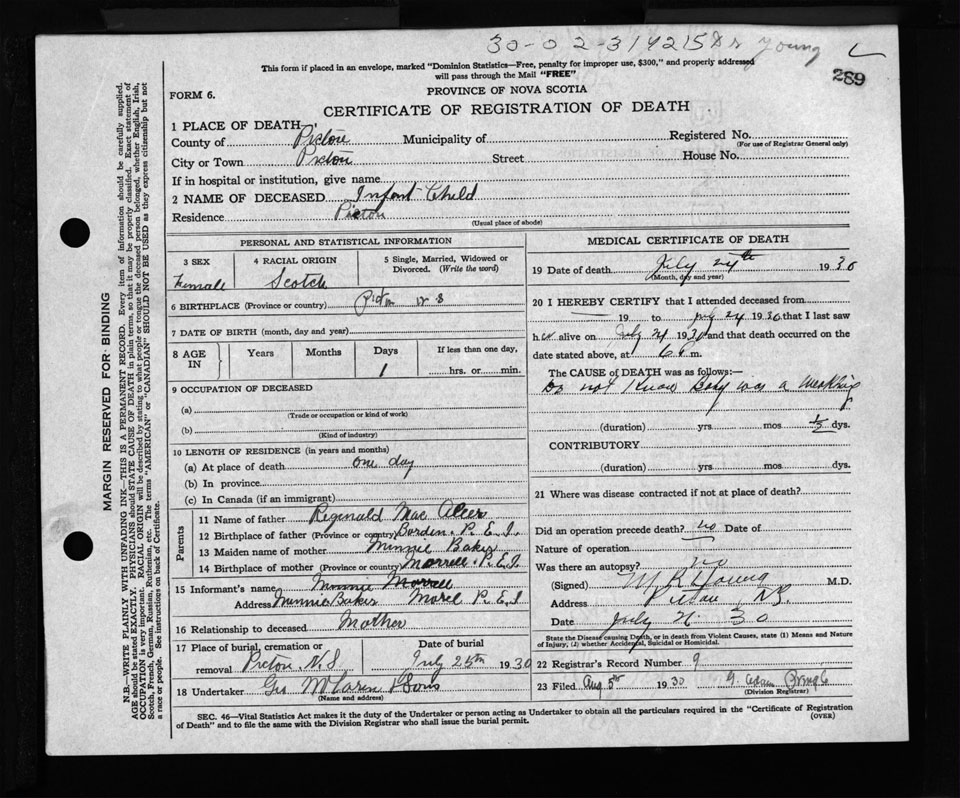 30-0 2-314215 Dr Young
This form if placed in an envelope, marked "Dominion Statistics—Free, penalty for improper use, $300," and properly addressed
will pass through the Mail "FREE"
289
FORM 6.
PROVINCE OF NOVA SCOTIA
CERTIFICATE OF REGISTRATION OF DEATH
1 PLACE OF DEATH—
County of Pictou Municipality of Registered No.
(For use of Registrar General only)
City or Town Pictou Street House No.
If in hospital or institution, give name
2 NAME OF DECEASED Infant Child
Residence Pictou
(Usual place of abode)
PERSONAL AND STATISTICAL INFORMATION
3 SEX
Female
4 RACIAL ORIGIN
Scotch
5 Single, Married, Widowed or
Divorced. (Write the word)
6 BIRTHPLACE (Province or country) Pictou N S
7 DATE OF BIRTH (month, day and year)
8 AGE
IN
Years
Months
Days
1
If less than one day,
hrs. or min.
9 OCCUPATION OF DECEASED
(a)
(Trade or occupation or kind of work)
(b)
(Kind of industry)
10 LENGTH OF RESIDENCE (in years and months)
(a) At place of death one day
(b) In province
(c) In Canada (if an immigrant)
Parents
11 Name of father Reginald Mac
12 Birthplace of father (Province or country) Borden. P. E. I.
13 Maiden name of mother Minnie Baker
14 Birthplace of mother (Province or country) Morrell. P. E. I.
15 Informant's name Minnie Morrell
Address Minnie Baker Morel P. E. I
16 Relationship to deceased Mother
17 Place of burial, cremation or
removal Pictou N. S
Date of burial
July 25th 1930
18 Undertaker Geo McLaren & Sons
(Name and address)
MEDICAL CERTIFICATE OF DEATH
19 Date of death July 24th 1930
(Month, day and year)
20 I HEREBY CERTIFY that I attended deceased from
19 to July 24 1930 that I last saw
her alive on July 24 1930 and that death occurred on the
date stated above, at 6 m.
The CAUSE of DEATH was as follows:—
Do not Know Baby was a weakling
(duration) yrs mos dys.
CONTRIBUTORY
(duration) yrs. mos. dys.
21 Where was disease contracted if not at place of death?
Did an operation precede death? no Date of
Nature of operation
Was there an autopsy? no
(Signed) M R Young M.D.
Address Pictou N.S.
Date July 26 30
State the Disease causing Death, or in death from Violent Causes, state (1) Means and Nature
of Injury, (2) whether Accidental, Suicidal or Homicidal.
22 Registrar's Record Number 9
23 Filed Aug 5th 1930 G. Pringle
(Division Registrar)
SEC. 46—Vital Statistics Act makes it the duty of the Undertaker or person acting as Undertaker to obtain all the particulars required in the "Certificate of Registration
of Death" and to file the same with the Division Registrar who shall issue the burial permit.
(OVER)
MARGIN RESERVED FOR BINDING
N.B.—WRITE PLAINLY WITH UNFADING INK—THIS IS A PERMANENT RECORD. Every item of information should be carefully supplied.
AGE should be stated EXACTLY. PHYSICIANS should STATE CAUSE OF DEATH in plain terms, so that it may be properly classified. Exact statement of
OCCUPATION is very important. RACIAL ORIGIN will be described by stating to what people or tongue the deceased person belonged, whether English, Irish,
Scotch, French, German, Russian, Ruthenian, etc. The terms "AMERICAN" or "CANADIAN" SHOULD NOT BE USED as they express citizenship but not
a race or people. See instructions on back of Certificate.